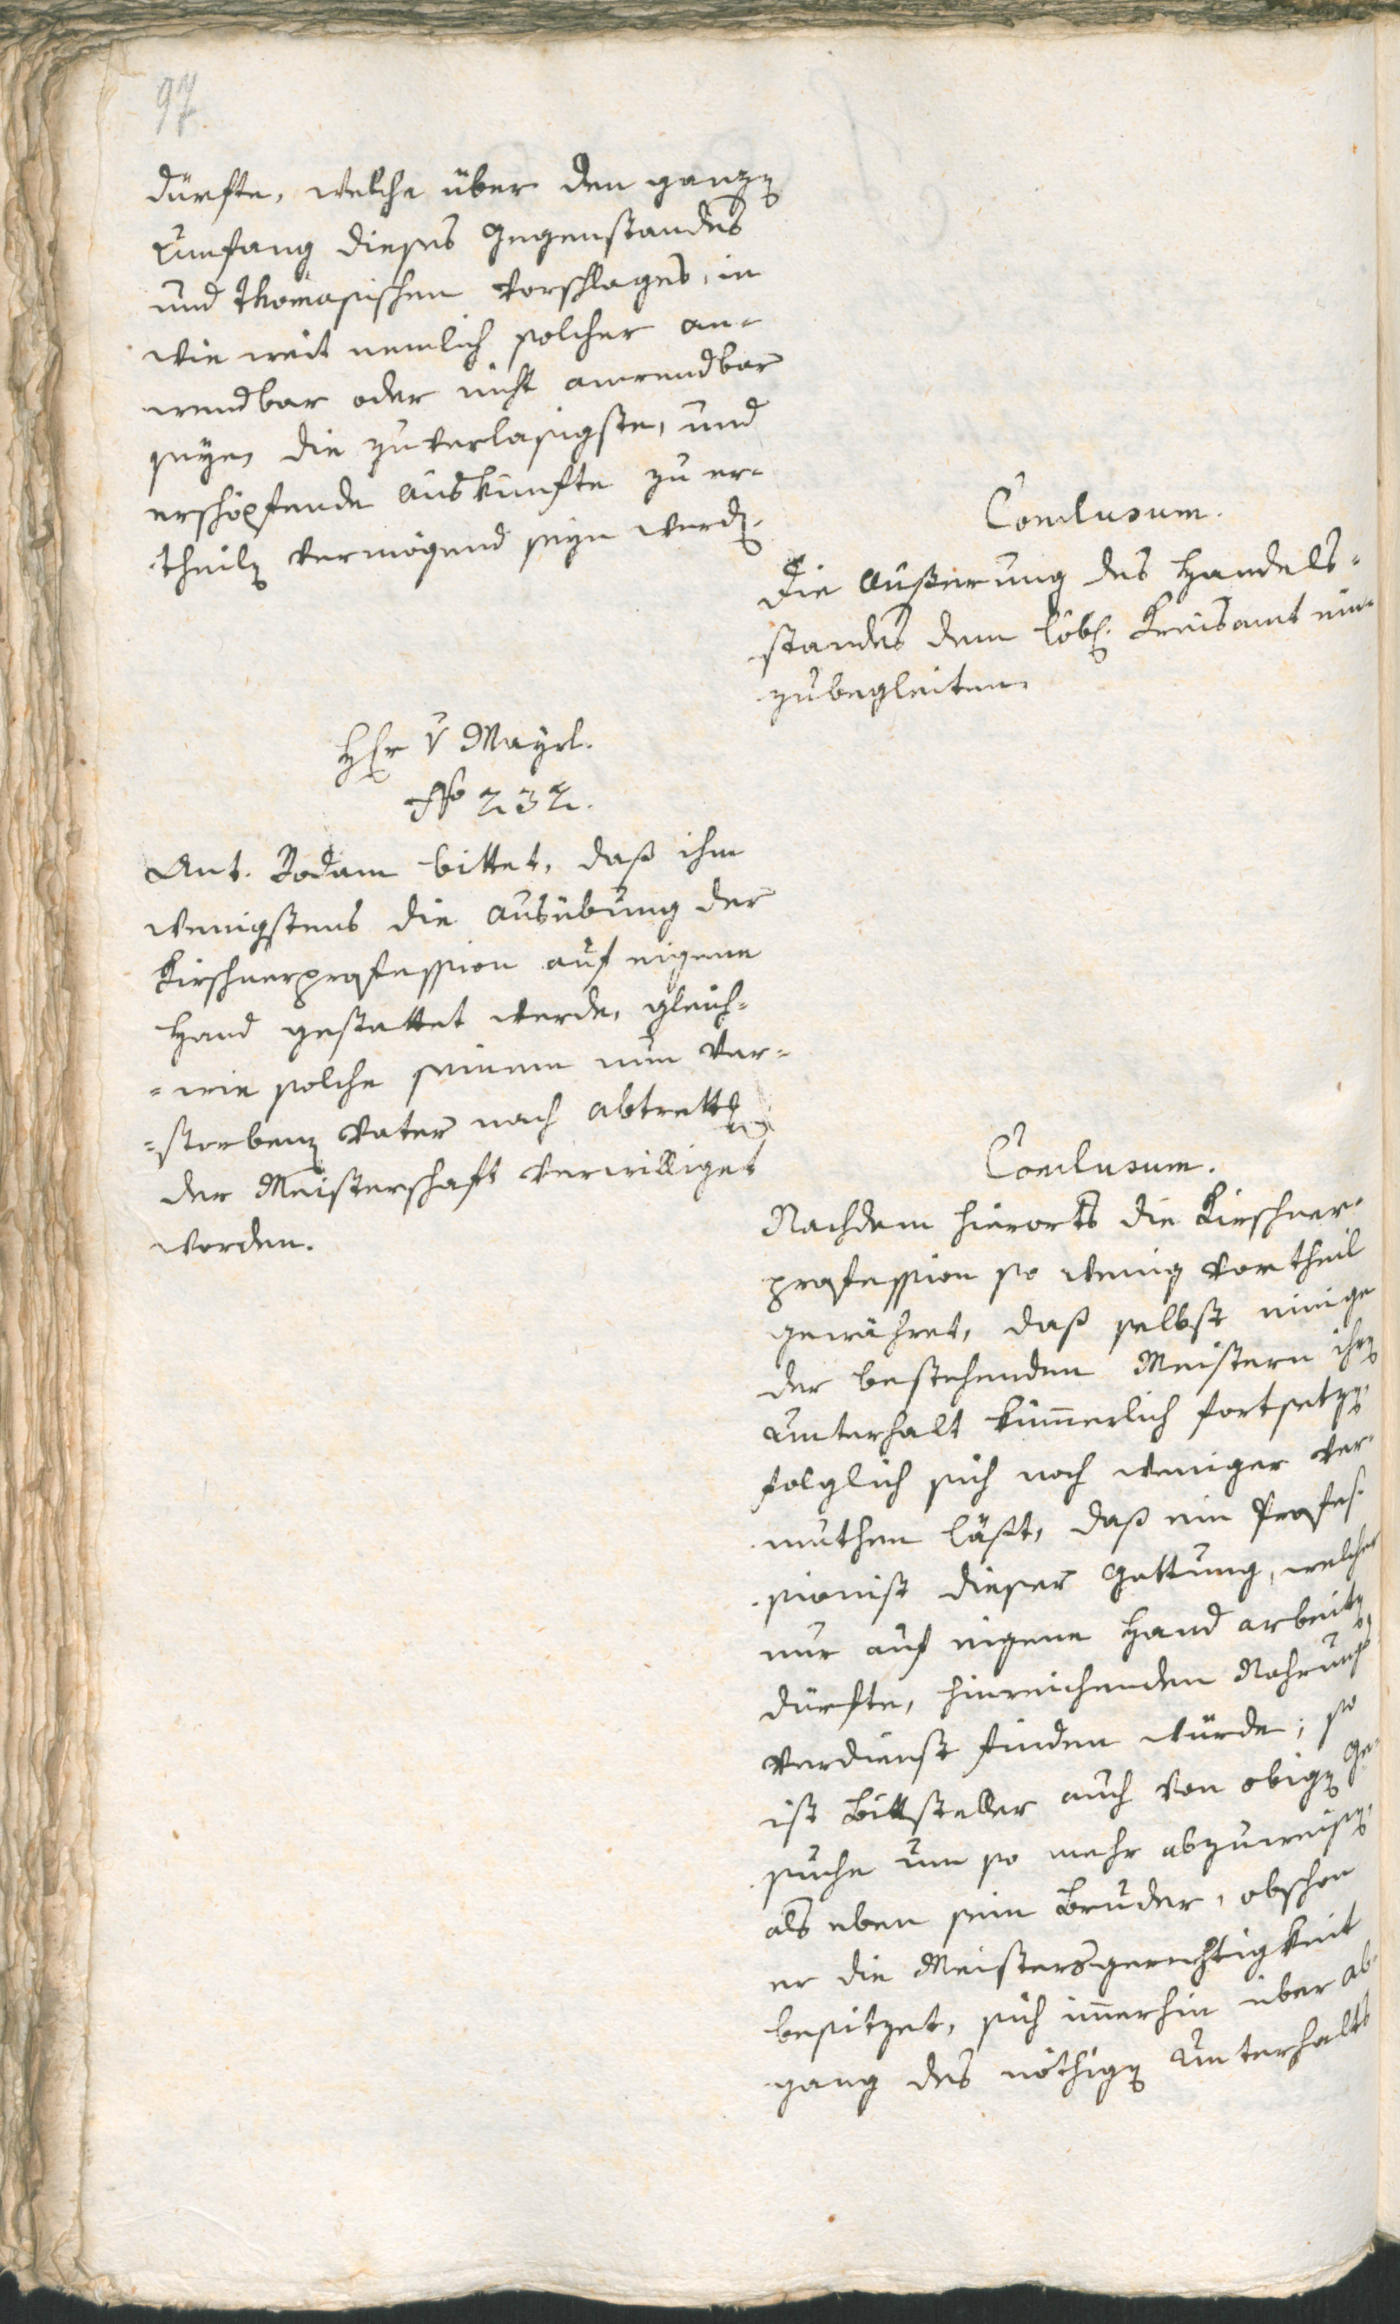 97
dürfte, welche über den ganzen
Umfang dieses Gegenstandes
und Thomasischen Vorschlages, in
wie weit nemlich solcher an-
wendbar oder nicht anwendbar
seye, die zuverlasigste, und
erschöpfende Auskünfte zu er-
theilen vermögend seyn werden.
Conclusum.
Die Äußerung des Handels-
standes dem löbl. Kreisamt ein-
zubegleiten.
Hr v Mayrl.
No 232.
Ant. Rodam bittet, daß ihm
wenigstens die Ausübung der
Kirschnerprofession auf eigene
Hand gestattet werde, gleich-
-wie solche seinem nun ver-
-storbenen Vater nach abtrettung
der Meisterschaft verwilliget
worden.
Conclusum.
Nachdem hierorts die Kirschner-
profession so wenig Vortheil
gewähret, daß selbst einige
der bestehenden Meistern ihren
Unterhalt kümmerlich fortsetzen,
folglich sich noch weniger ver-
muthen läßt, daß ein Profes-
sionist dieser Gattung, welcher
nur auf eigene Hand arbeiten
dürfte, hinreichenden Nahrungs
verdienst finden würde; so
ist Bittsteller auch von obigen Ge-
suche um so mehr abzuweisen,
als eben sein Bruder, obschon
er die Meistersgerechtigkeit
besitzet, sich immerhin über Ab-
gang des nöthigen Unterhalts